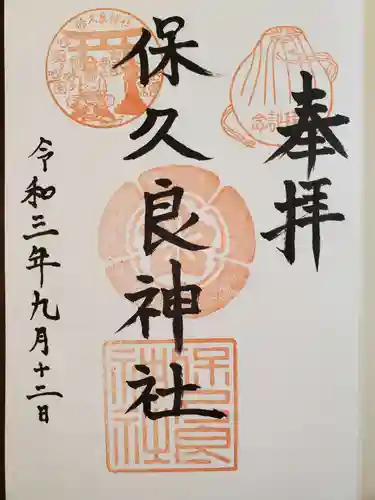 奉拝
保久良神社
令和三年九月十二日
保久良
神社